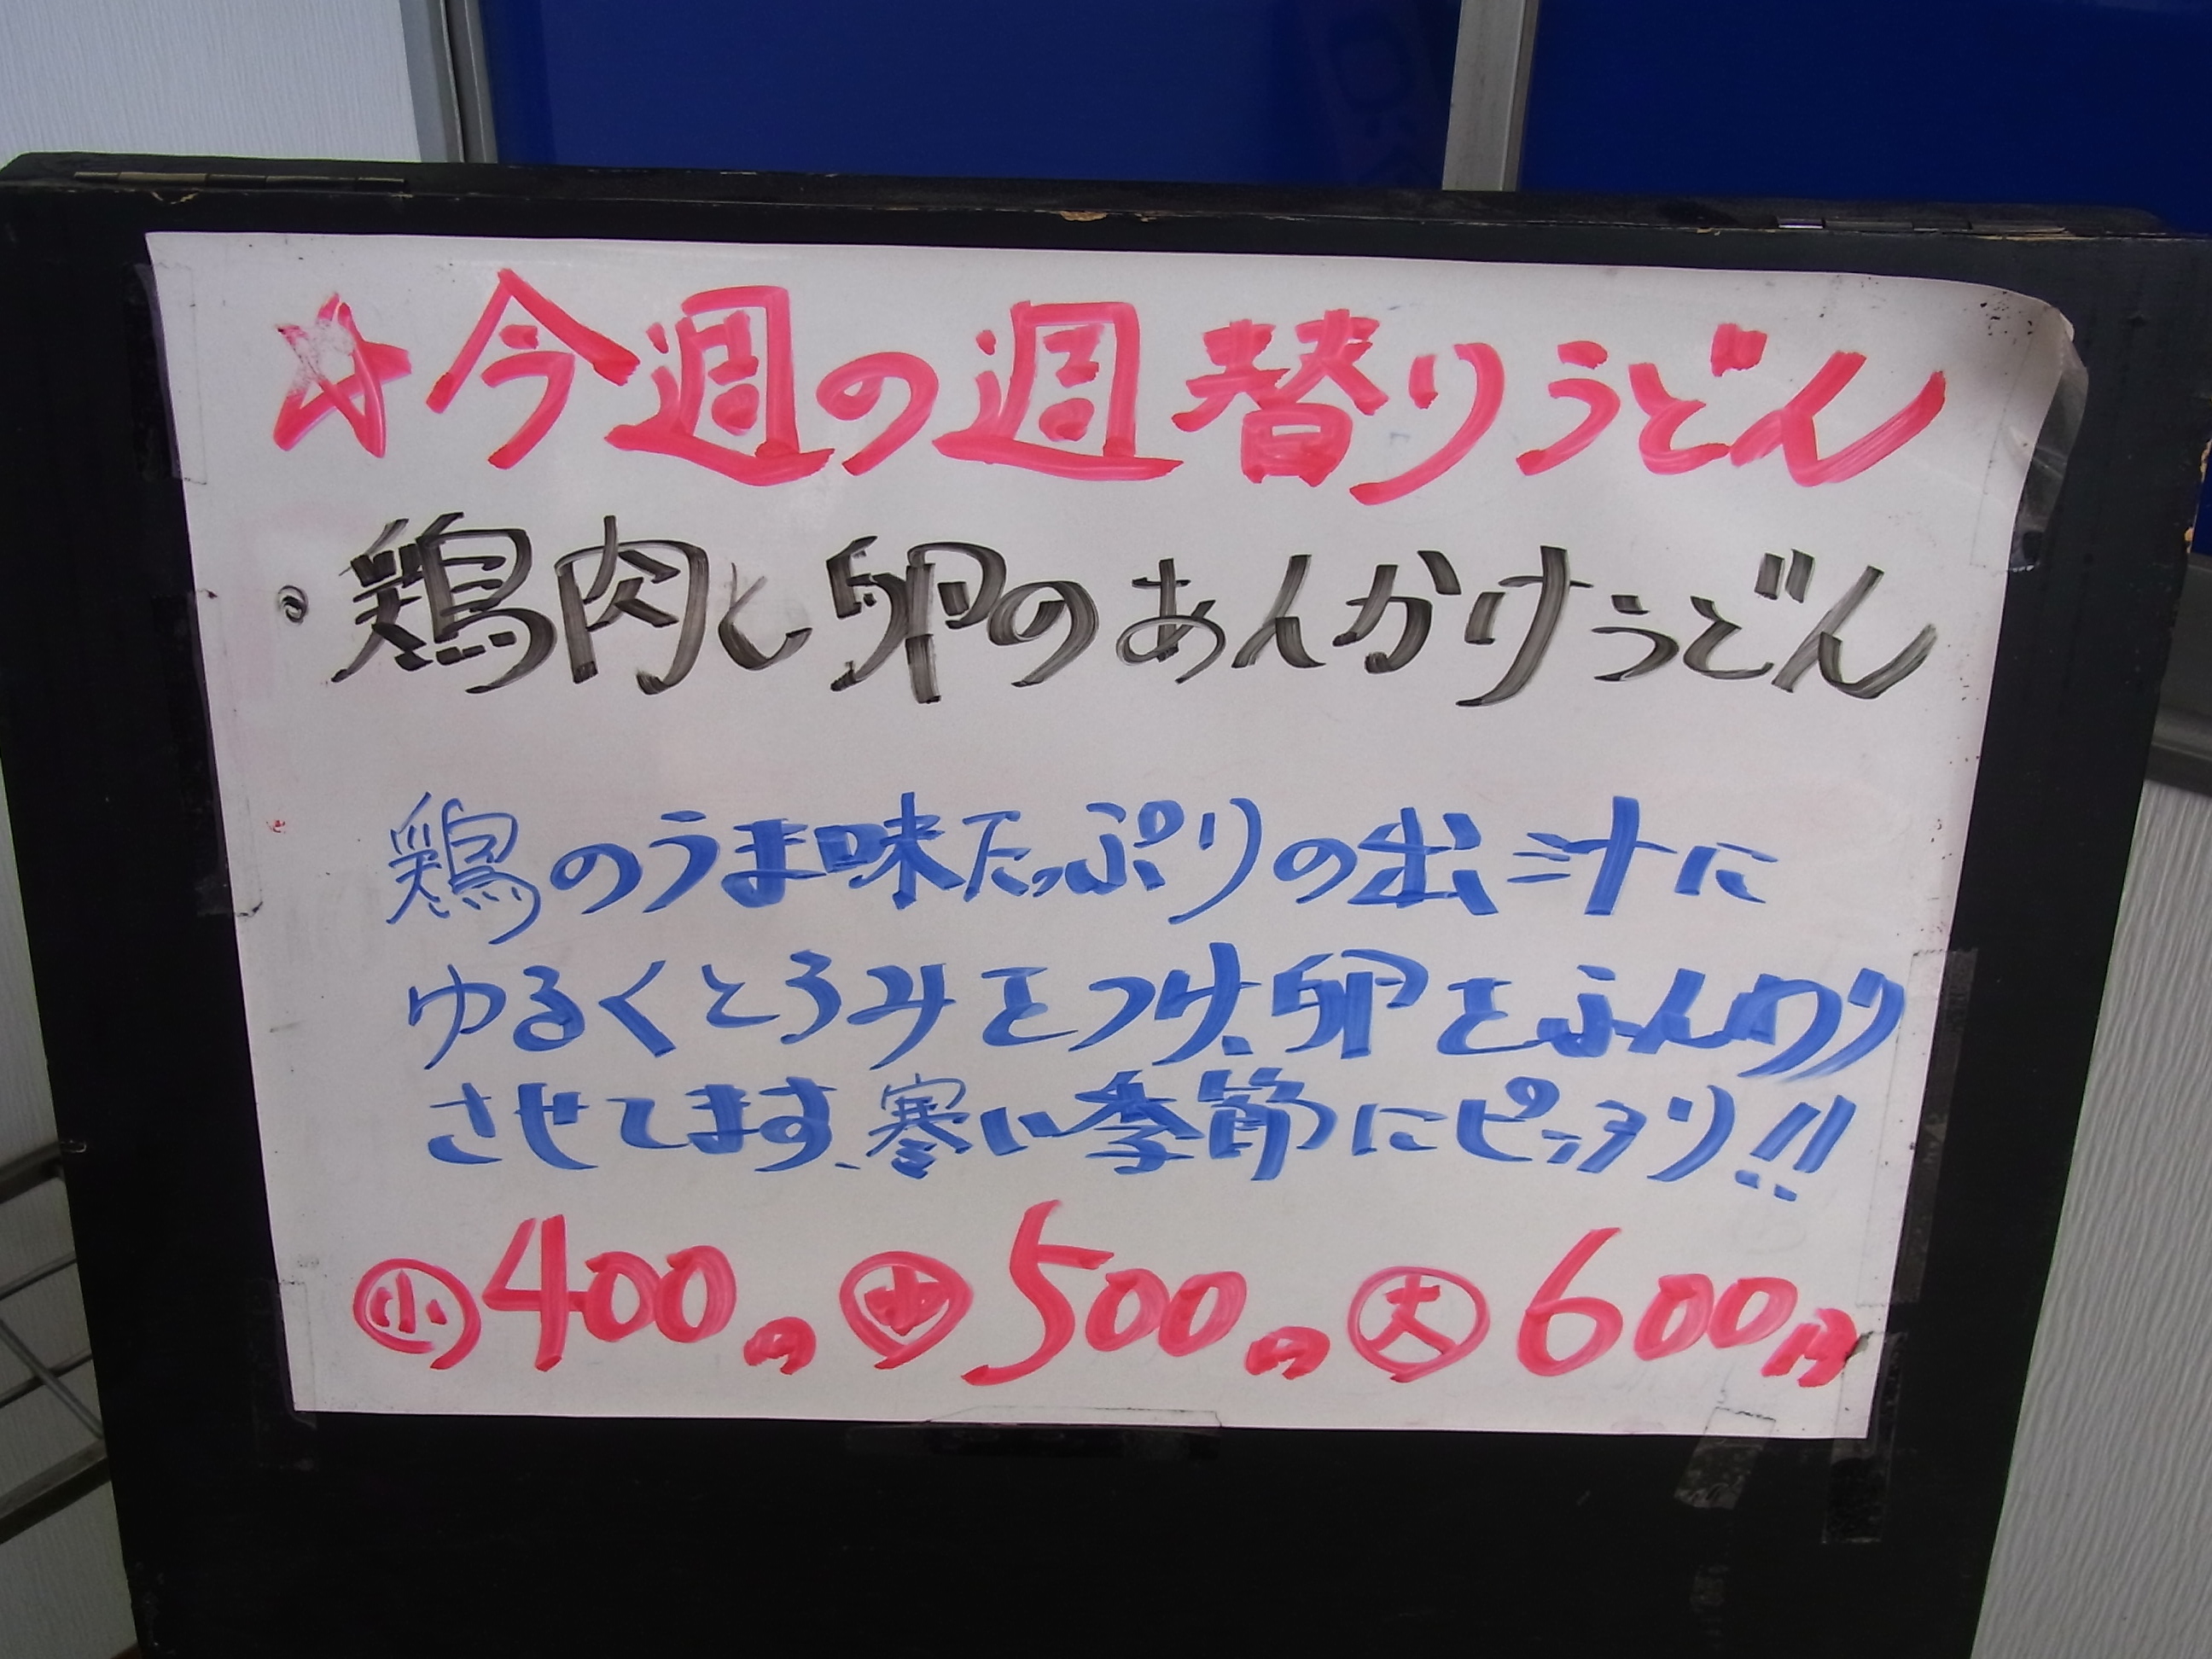 ☆今週の週替りうどん
・鶏肉と卵のあんかけうどん
鶏のうま味たっぷりの出汁に
ゆるくとろみをつけ、卵をふんわり
させてます、寒い季節にピッタリ!!
㊙小400円 ㊥500円 大600円